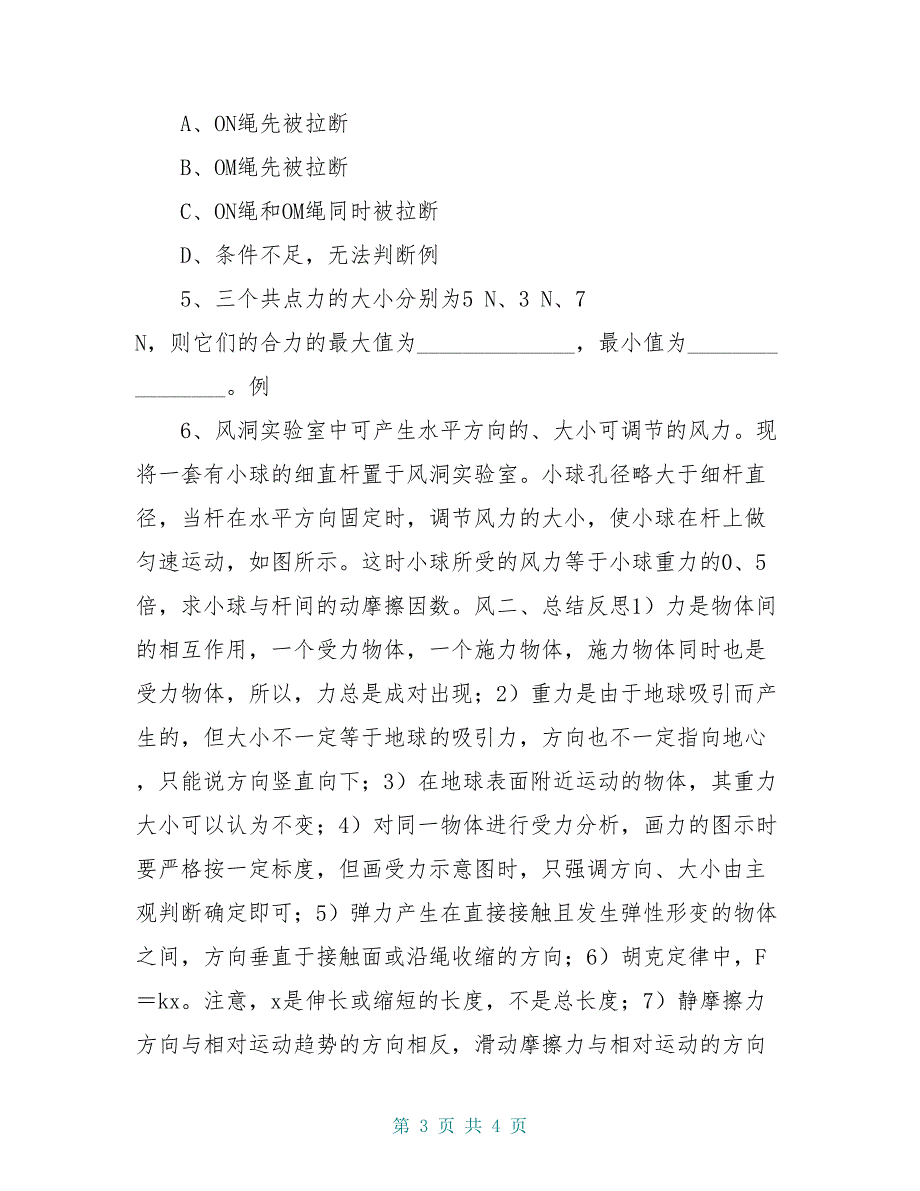 A、ON绳先被拉断
B、OM绳先被拉断
C、ON绳和OM绳同时被拉断
D、条件不足，无法判断例
5、三个共点力的大小分别为5 N、3 N、7
N，则它们的合力的最大值为______________，最小值为________
________。例
6、风洞实验室中可产生水平方向的、大小可调节的风力。现
将一套有小球的细直杆置于风洞实验室。小球孔径略大于细杆直
径，当杆在水平方向固定时，调节风力的大小，使小球在杆上做
匀速运动，如图所示。这时小球所受的风力等于小球重力的0、5
倍，求小球与杆间的动摩擦因数。风二、总结反思1）力是物体间
的相互作用，一个受力物体，一个施力物体，施力物体同时也是
受力物体，所以，力总是成对出现；2）重力是由于地球吸引而产
生的，但大小不一定等于地球的吸引力，方向也不一定指向地心
，只能说方向竖直向下；3）在地球表面附近运动的物体，其重力
大小可以认为不变；4）对同一物体进行受力分析，画力的图示时
要严格按一定标度，但画受力示意图时，只强调方向、大小由主
观判断确定即可；5）弹力产生在直接接触且发生弹性形变的物体
之间，方向垂直于接触面或沿绳收缩的方向；6）胡克定律中，F
＝kx。注意，x是伸长或缩短的长度，不是总长度；7）静摩擦力
方向与相对运动趋势的方向相反，滑动摩擦力与相对运动的方向
第 3 页 共 4 页